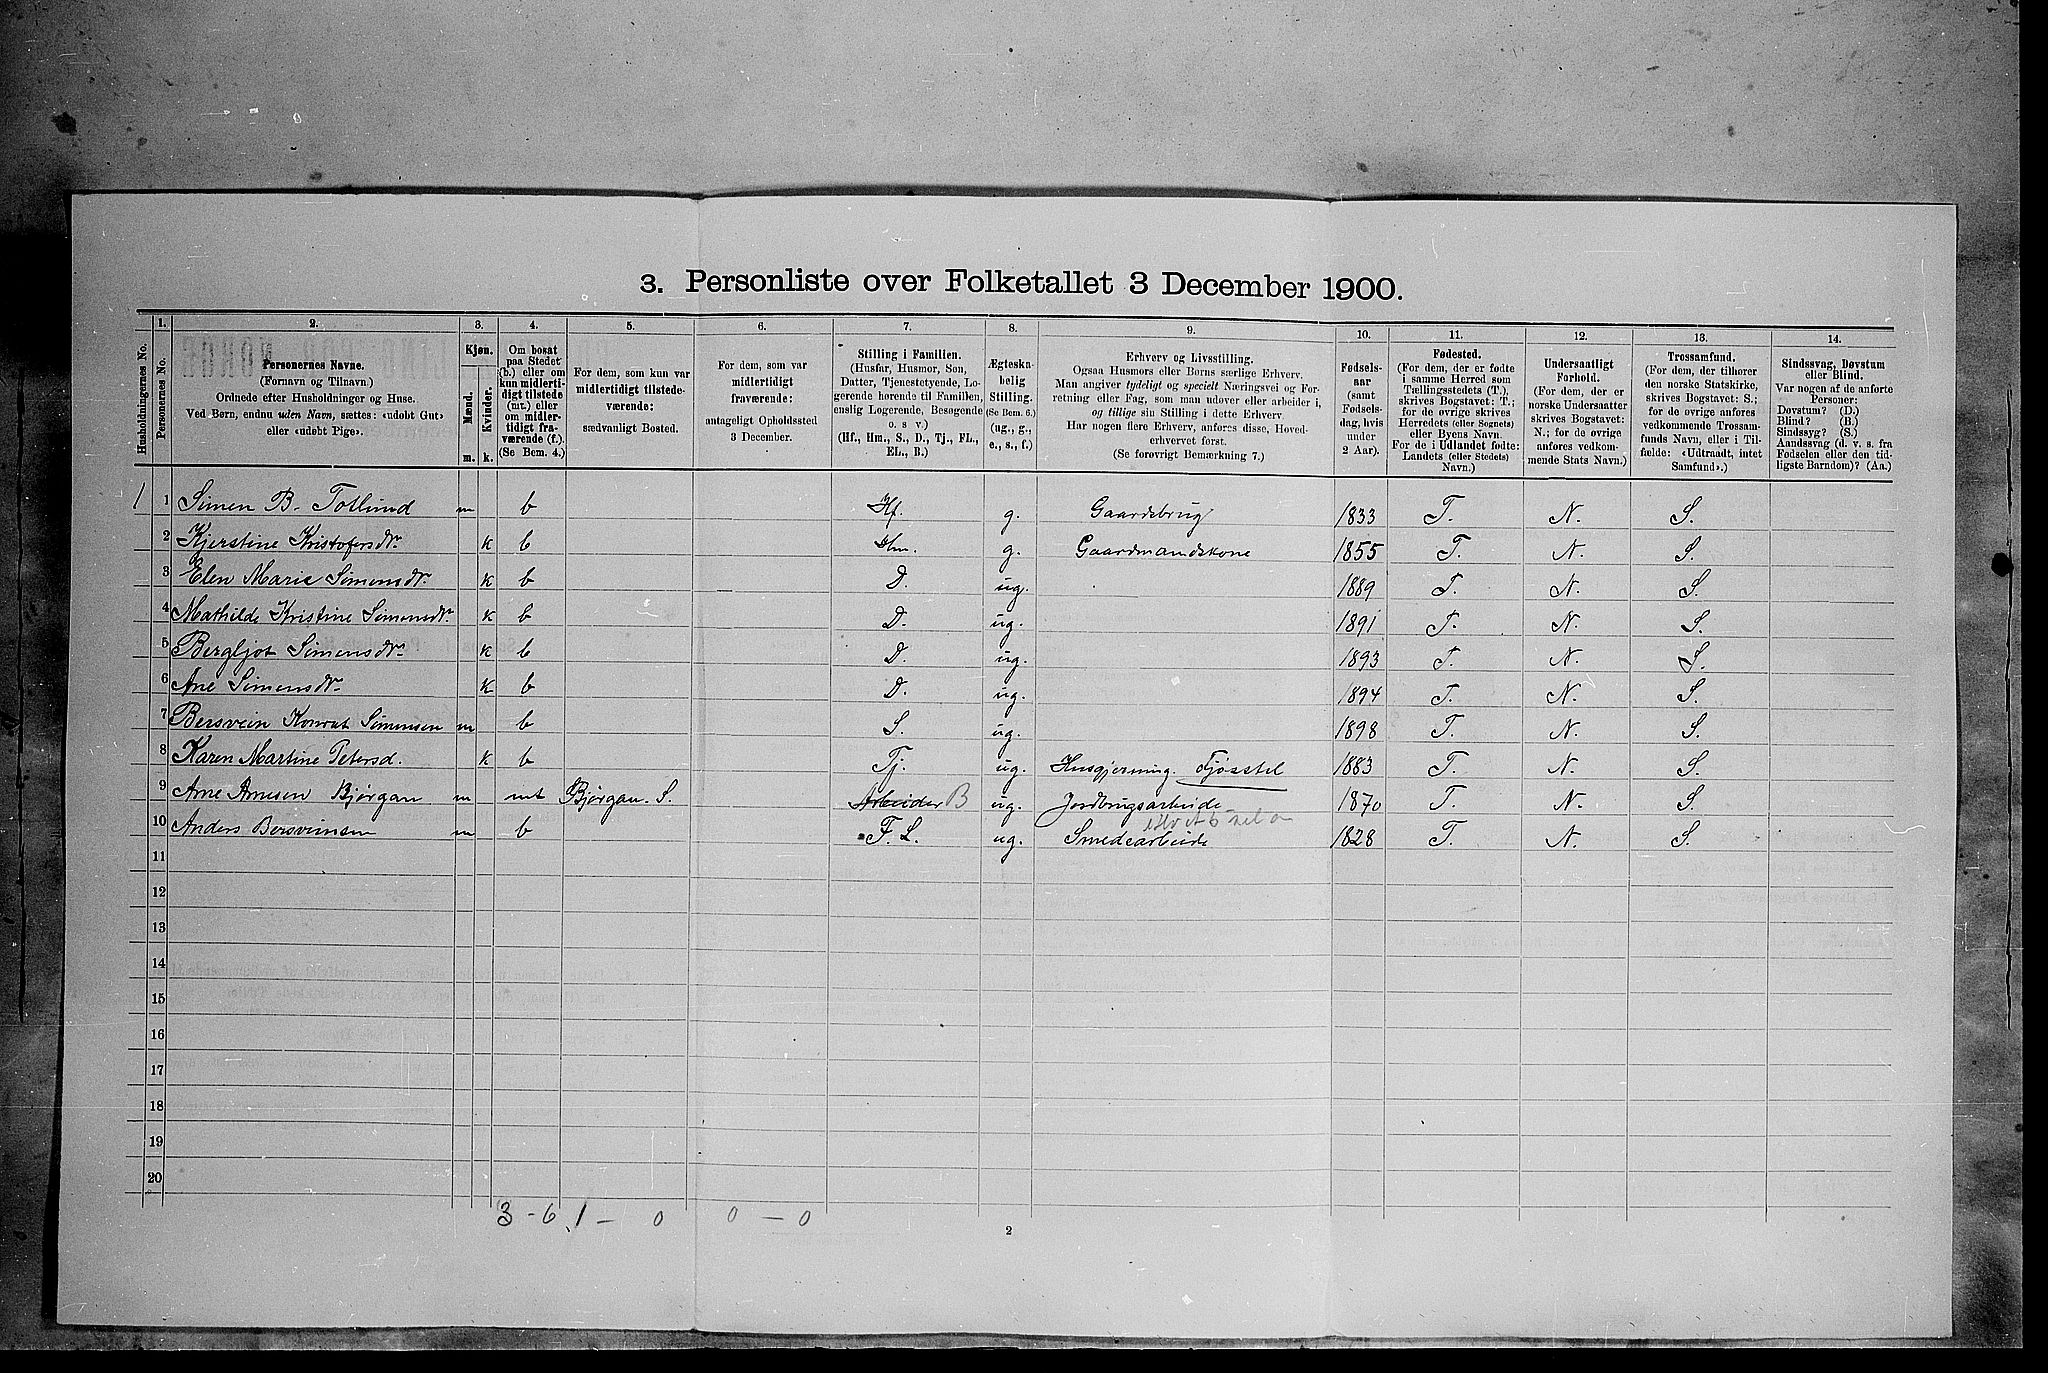 3. Personliste over Folketallet 3 December 1900.
Husholdningernes No.
1.
Personernes No.
2.
Personernes Navne.
(Fornavn og Tilnavn.)
Ordnede efter Husholdninger og Huse.
Ved Børn, endnu uden Navn, sættes: «udøbt Gut»
eller «udøbt Pige».
3.
Kjøn.
Mænd.
Kvinder.
m. k.
4.
Om bosat
paa Stedet
(b.) eller om
kun midlerti-
digt tilstede
(mt.) eller
om midler-
tidigt fra-
værende (f.)
(Se Bem. 4.)
5.
For dem, som kun var
midlertidigt tilstede-
værende:
sædvanligt Bosted.
6.
For dem, som var
midlertidigt
fraværende:
antageligt Opholdssted
3 December.
7.
Stilling i Familien.
(Husfar, Husmor, Søn,
Datter, Tjenestetyende, Lo-
gerende hørende til Familien,
enslig Logerende, Besøgende
o. s v.)
(Hf., Hm., S., D., Tj., FL.,
EL., B.)
8.
Ægteska-
belig
Stilling.
(Se Bem. 6.)
(ug., g.,
e., s., f.)
9.
Erhverv og Livsstilling.
Ogsaa Husmors eller Børns særlige Erhverv.
Man angiver tydeligt og specielt Næringsvei og For-
retning eller Fag, som man udøver eller arbeider i,
og tillige sin Stilling i dette Erhverv.
Har nogen flere Erhverv, anføres disse, Hoved-
erhvervet først.
(Se forøvrigt Bemærkning 7.)
10.
Fødsels-
aar
(samt
Fødsels-
dag, hvis
under
2 Aar).
11.
Fødested.
(For dem, der er fødte
i samme Herred som
Tællingsstedets (T.),
skrives Bogstavet: T.;
for de øvrige skrives
Herredets (eller Sognets)
eller Byens Navn.
For de i Udlandet fødte:
Landets (eller Stedets)
Navn.)
12.
Undersaatligt
Forhold.
(For dem, der er
norske Undersaatter
skrives Bogstavet:
N.; for de øvrige
anføres vedkom-
mende Stats Navn.)
13.
Trossamfund.
(For dem, der tilhører
den norske Statskirke,
skrives Bogstavet: S.;
for de øvrige anføres
vedkommende Trossam-
funds Navn, eller i Til-
fælde: «Udtraadt, intet
Samfund».)
14.
Sindssvag, Døvstum
eller Blind.
Var nogen af de anførte
Personer:
Døvstum? (D.)
Blind? (B.)
Sindssyg? (S.)
Aandssvag (d. v. s. fra
Fødselen eller den tid-
ligste Barndom)? (Aa.)
1 1 Simen B. Totlund m b Hf. g. Gaardsbrug 1833 T. N. S.
2 Kjerstine Kristofersdtr. k b Hm. g. Gaardmandskone 1855 T. N. S.
3 Elen Marie Simensdtr. k b D. ug. 1889 T. N. S.
4 Mathilde Kristine Simensdtr. k b D. ug. 1891 T. N. S.
5 Bergljot Simensdtr. k b D. ug. 1893 T. N. S.
6 Ane Simensdtr. k b D. ug. 1894 T. N. S.
7 Bersvein Konrat Simensen m b S. ug. 1898 T. N. S.
8 Karen Martine Petersd. k b Tj. ug. Husgjerning. Fjøsstel 1883 T. N. S.
9 Arne Arnesen Bjørgan m mt Bjørgan. S. Arbeider B ug. Jordbrugsarbeide 1870 T. N. S.
10 Anders Bersveinsen m b F. L. ug. Smedearbeide 1828 T. N. S.
11
12
13
14
15
16
17
18
19
20
3 - 6 1 - 0 0 - 0
2